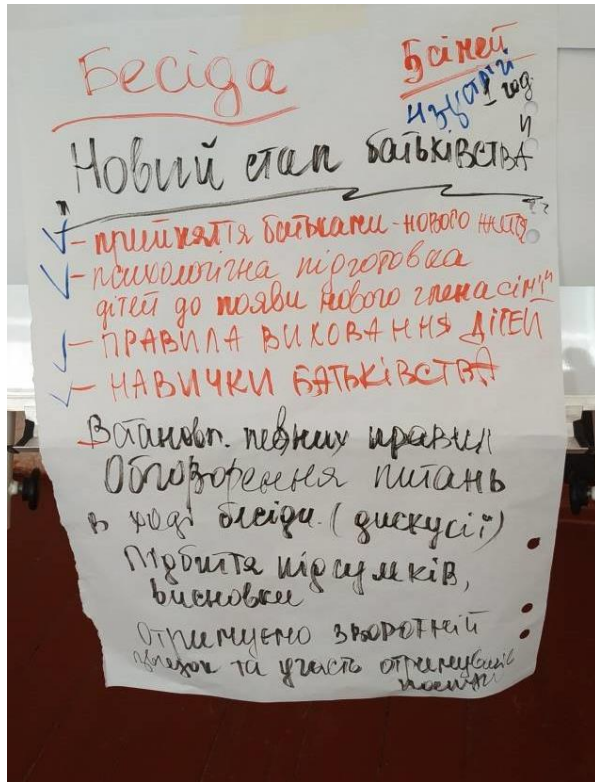 Бесіда
5 сімей
4 зустрічі
1 год
Новий етап батьківства
- прийняття батьками - нового життя
- психологічна підготовка
дітей до появи нового члена сім'ї
- ПРАВИЛА ВИХОВАННЯ ДІТЕЙ
- НАВИЧКИ БАТЬКІВСТВА
Встановл. певних правил
Обговорення питань
в ході бесіди. (дискусії)
Підбиття підсумків,
висновки
Отримуємо зворотній
звязок та участь отримувачів
послуги